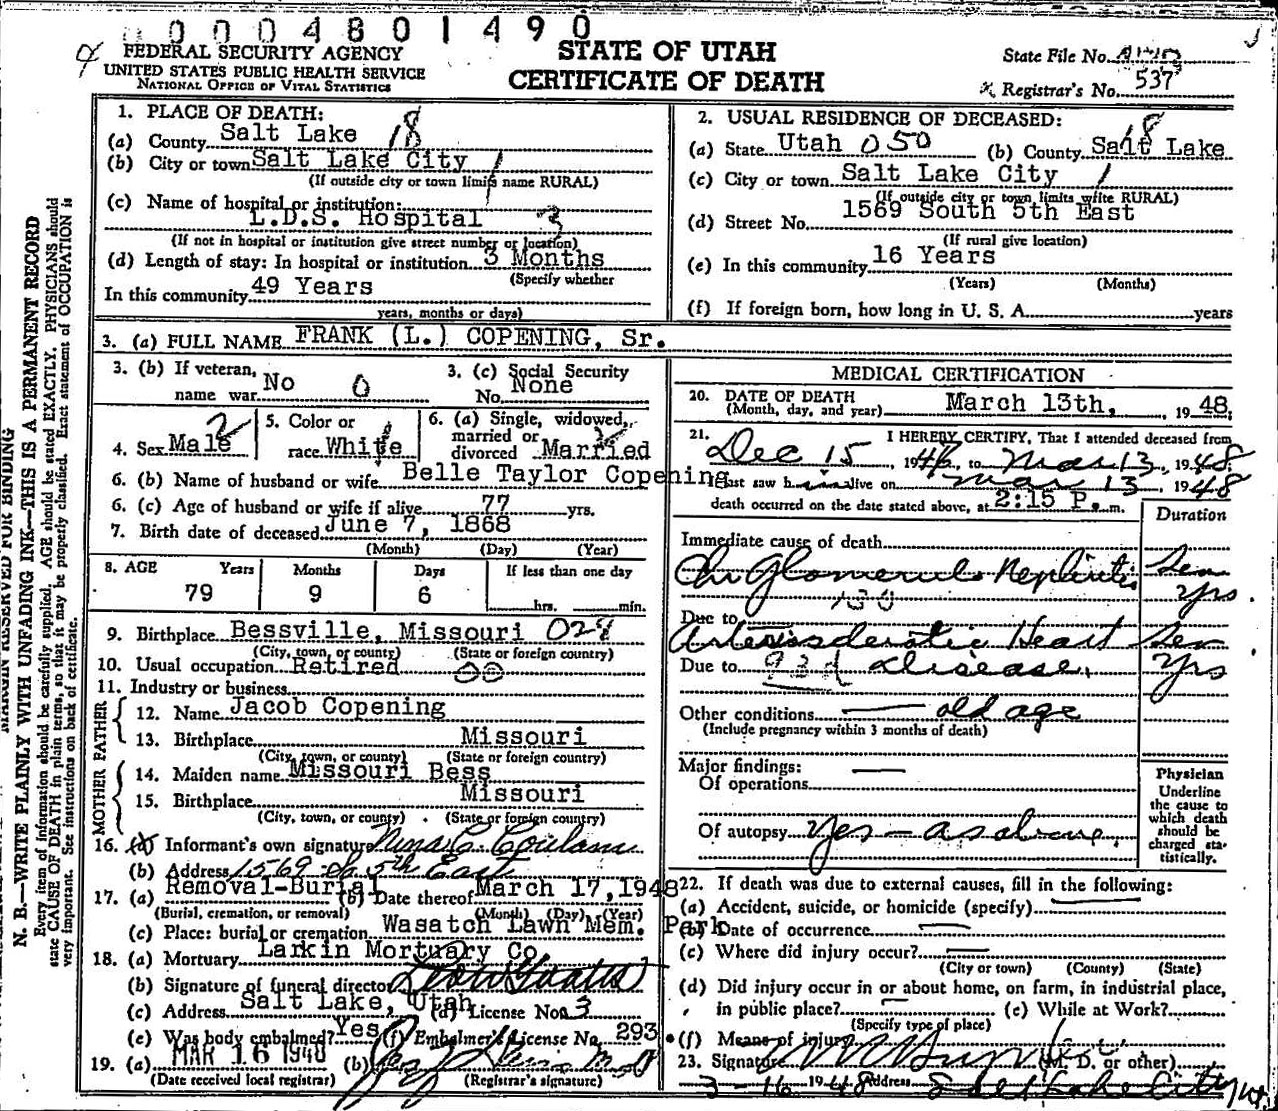 0004801490
FEDERAL SECURITY AGENCY
UNITED STATES PUBLIC HEALTH SERVICE
NATIONAL OFFICE OF VITAL STATISTICS
STATE OF UTAH
CERTIFICATE OF DEATH
State File No.
Registrar's No. 537
MARGIN RESERVED FOR BINDING
N. B.—WRITE PLAINLY WITH UNFADING INK—THIS IS A PERMANENT RECORD
Every item of information should be carefully supplied. AGE should be stated EXACTLY. PHYSICIANS should
state CAUSE OF DEATH in plain terms, so that it may be properly classified. Exact statement of OCCUPATION is
very important. See instructions on back of certificate.
1. PLACE OF DEATH:
(a) County Salt Lake 18
(b) City or town Salt Lake City 1
(If outside city or town limits name RURAL)
(c) Name of hospital or institution:
L.D.S. Hospital 3
(If not in hospital or institution give street number or location)
(d) Length of stay: In hospital or institution 3 Months
(Specify whether
In this community 49 Years
years, months or days)
2. USUAL RESIDENCE OF DECEASED:
(a) State Utah 050 (b) County Salt Lake 18
(c) City or town Salt Lake City 1
(If outside city or town limits write RURAL)
(d) Street No. 1569 South 5th East
(If rural give location)
(e) In this community 16 Years
(Years) (Months)
(f) If foreign born, how long in U. S. A. years
3. (a) FULL NAME FRANK (L.) COPENING, Sr.
3. (b) If veteran, name war No 0
3. (c) Social Security No. None
4. Sex Male 2
5. Color or race White
6. (a) Single, widowed, married or divorced Married
6. (b) Name of husband or wife Belle Taylor Copening
6. (c) Age of husband or wife if alive 77 yrs.
7. Birth date of deceased June 7, 1868
(Month) (Day) (Year)
8. AGE Years Months Days If less than one day
79 9 6 hrs. min.
9. Birthplace Bessville, Missouri
(City, town, or county) (State or foreign country)
10. Usual occupation Retired 00
11. Industry or business
FATHER
12. Name Jacob Copening
13. Birthplace Missouri
(City, town, or county) (State or foreign country)
MOTHER
14. Maiden name Missouri Bess
15. Birthplace Missouri
(City, town, or county) (State or foreign country)
16. (a) Informant's own signature Nina C.
(b) Address 1569 So. 5th East
17. (a) Removal-Burial (b) Date thereof March 17, 1948
(Burial, cremation, or removal) (Month) (Day) (Year)
(c) Place: burial or cremation Wasatch Lawn Mem. Park
18. (a) Mortuary Larkin Mortuary Co.
(b) Signature of funeral director
(c) Address Salt Lake, Utah (d) License No. 3
(e) Was body embalmed? Yes (f) Embalmer's License No. 293
19. (a) MAR 16 1948 (b)
(Date received local registrar) (Registrar's signature)
MEDICAL CERTIFICATION
20. DATE OF DEATH
(Month, day, and year) March 13th, 1948
21. I HEREBY CERTIFY, That I attended deceased from
Dec 15, 19 to Mar 13, 1948
I last saw him alive on Mar 13, 1948
death occurred on the date stated above, at 2:15 P. m.
Duration
Immediate cause of death
Chr Glomerulo Nephritis Sev
yrs.
130
Due to
Arteriosclerotic Heart Sev
Due to disease, Yrs
Other conditions — old age
(Include pregnancy within 3 months of death)
Major findings: —
Of operations
Of autopsy yes — as above
Physician
Underline
the cause to
which death
should be
charged sta-
tistically.
22. If death was due to external causes, fill in the following:
(a) Accident, suicide, or homicide (specify) —
(b) Date of occurrence —
(c) Where did injury occur? —
(City or town) (County) (State)
(d) Did injury occur in or about home, on farm, in industrial place,
in public place? — (e) While at Work?
(Specify type of place)
(f) Means of injury
23. Signature (M. D. or other)
3-16 1948 Address Salt Lake City, Ut.